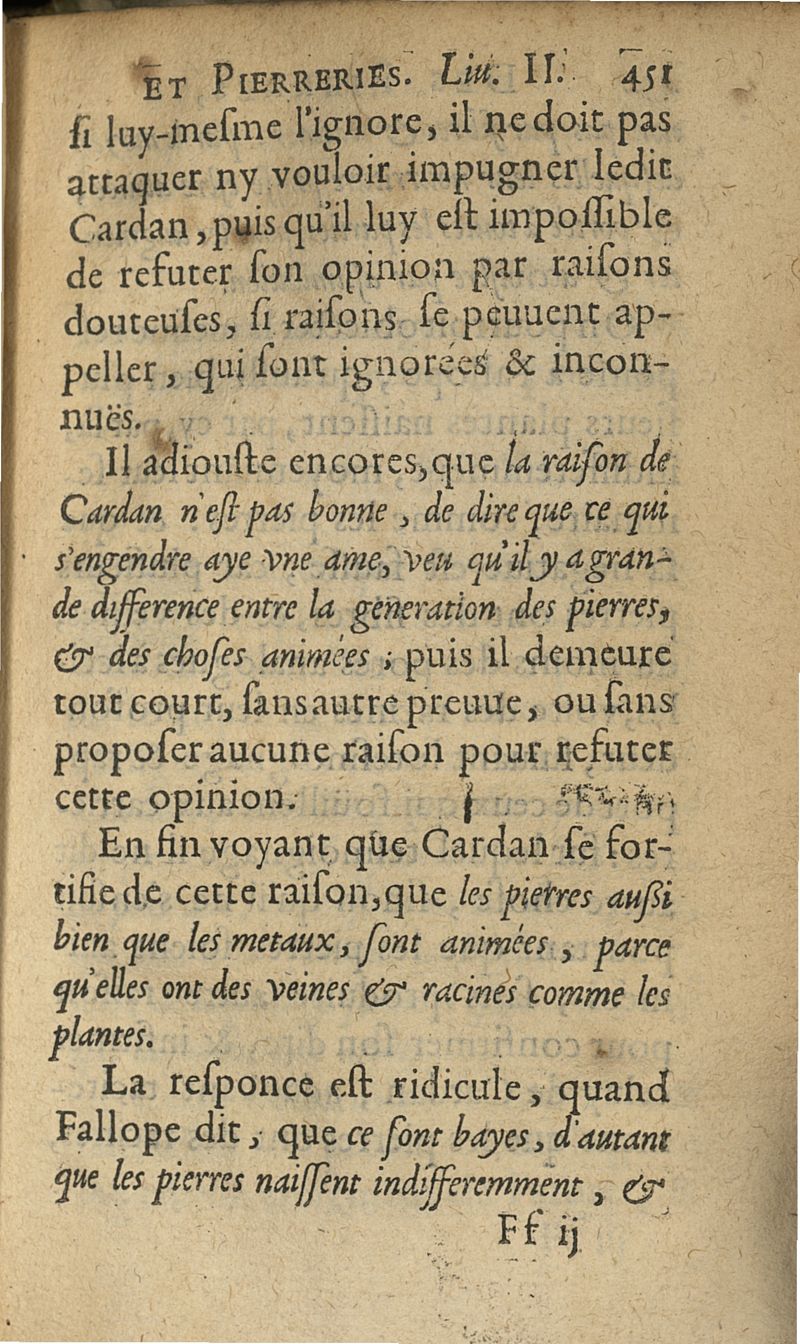 ET PIERRERIES. Liu. II. 451
ſi luy-meſme l'ignore, il ne doit pas
attaquer ny vouloir impugner ledit
Cardan, puis qu'il luy eſt impoſſible
de refuter ſon opinion par raiſons
douteuſes, ſi raiſons ſe peuuent ap-
peller, qui ſont ignorées & incon-
nuës.
Il adiouſte encores, que la raiſon de
Cardan n'eſt pas bonne, de dire que ce qui
s'engendre aye vne ame, veu qu'il y a gran-
de difference entre la generation des pierres,
& des choſes animées; puis il demeure
tout court, ſans autre preuue, ou ſans
propoſer aucune raiſon pour refuter
cette opinion.
En fin voyant que Cardan ſe for-
tifie de cette raiſon, que les pierres auſsi
bien que les metaux, ſont animées, parce
qu'elles ont des veines & racines comme les
plantes.
La reſponce eſt ridicule, quand
Fallope dit, que ce ſont bayes, d'autant
que les pierres naiſſent indifferemment, &
Ff ij